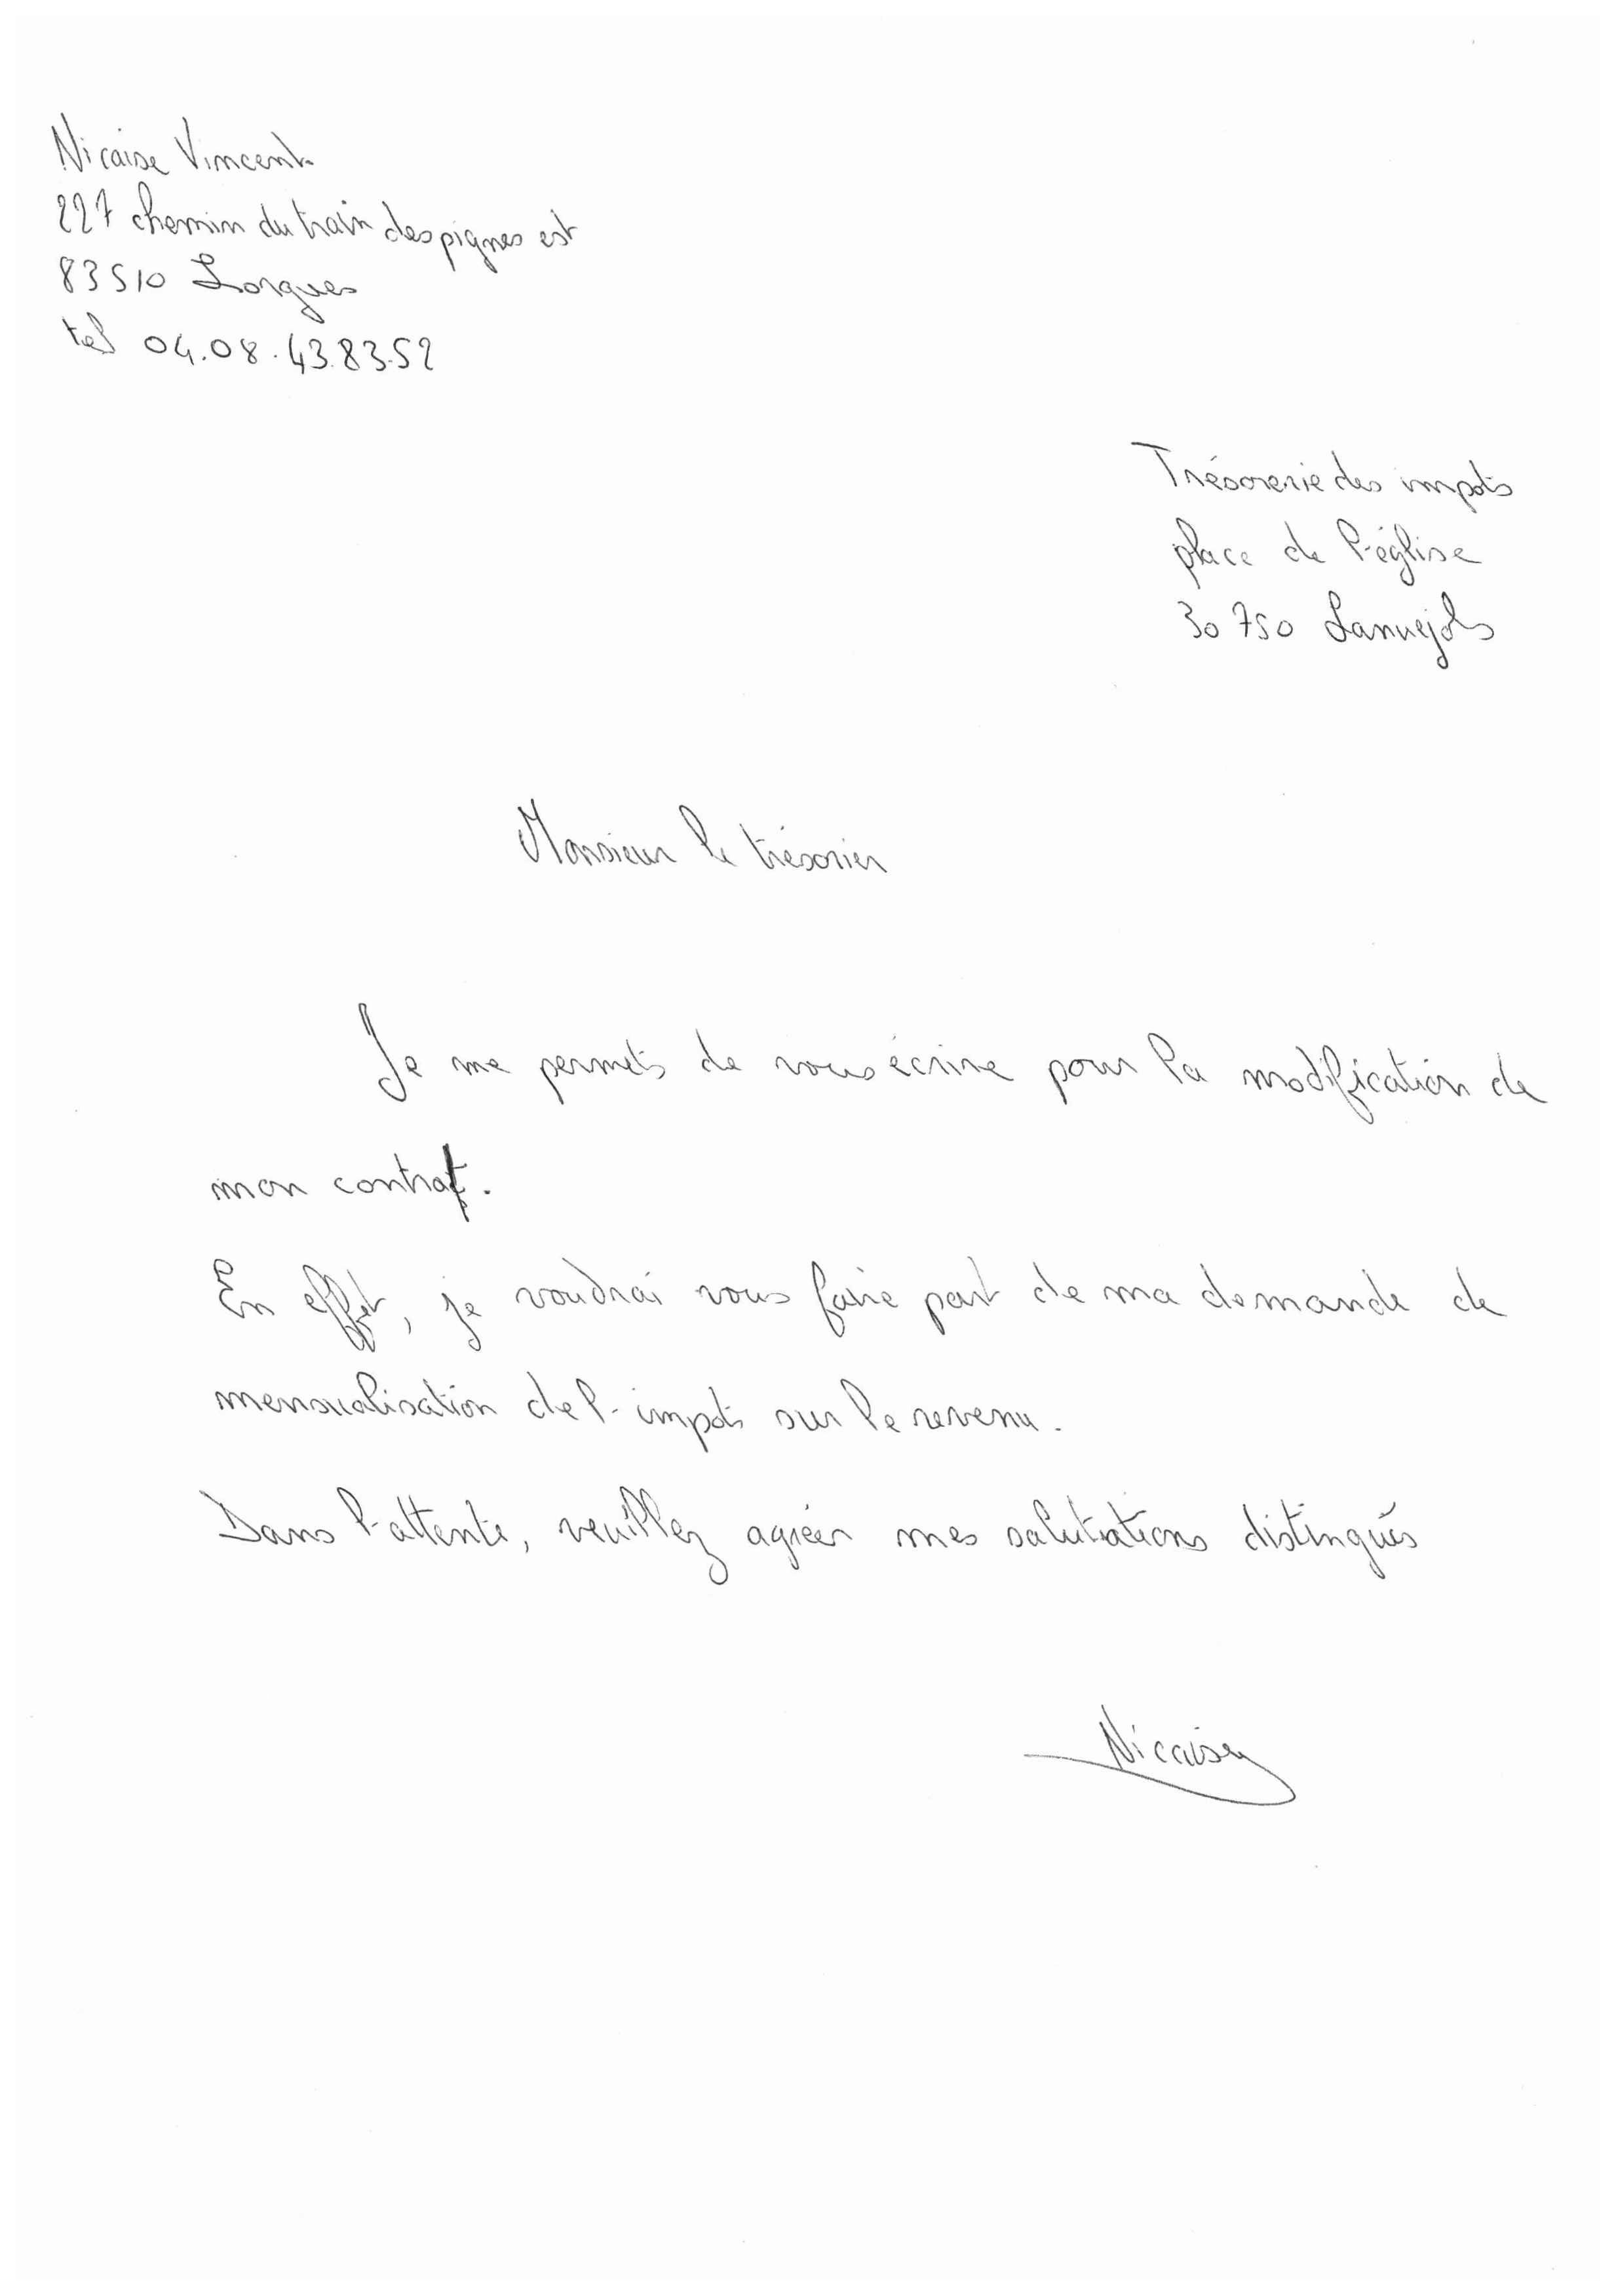 Nicaise Vincent
227 chemin du train des pignes est
83510 Lorgues
tel 04.08.43.83.52
Trésorerie des impots
place de l'église
30750 Lanuejols
Monsieur le trésorier
Je me permets de vous écrire pour la modification de
mon contrat.
En effet, je voudrai vous faire part de ma demande de
mensualisation de l'impots sur le revenu.
Dans l'attente, veuillez agréer mes salutations distingués
Nicaise